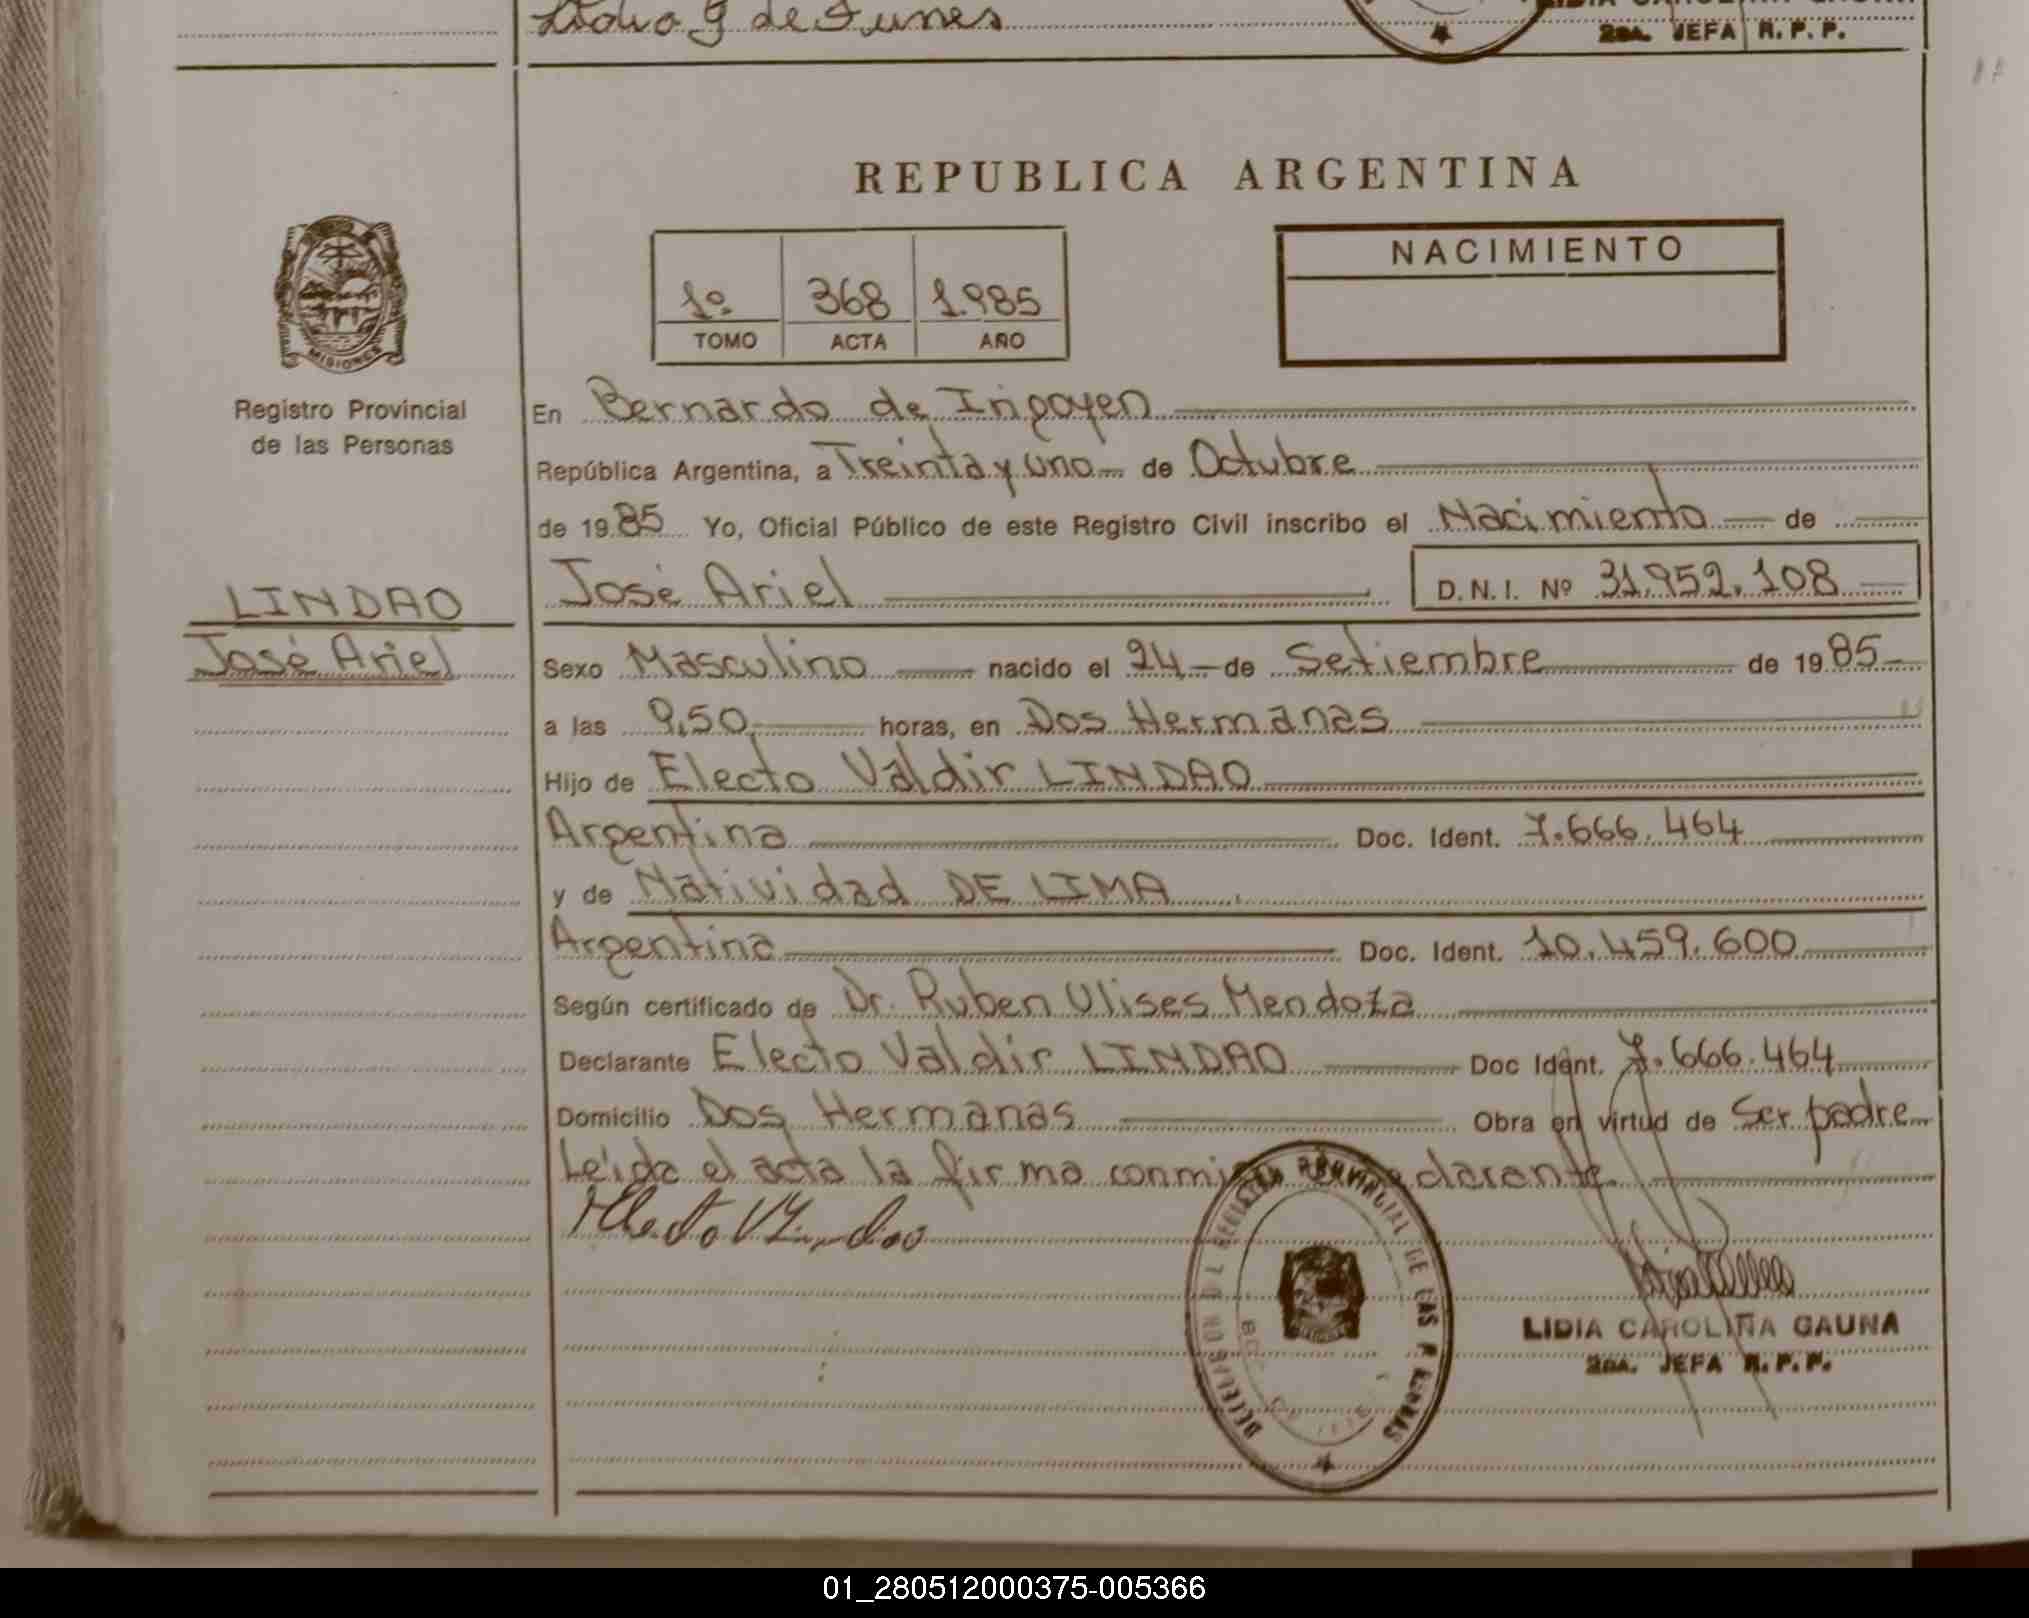 Lidia G de Funes
2DA. JEFA R. P. P.
REPUBLICA ARGENTINA
MISIONES
Registro Provincial
de las Personas
1º 368 1.985
TOMO ACTA AÑO
NACIMIENTO
En Bernardo de Irigoyen
República Argentina, a Treinta y uno de Octubre
de 1985 Yo, Oficial Público de este Registro Civil inscribo el Nacimiento de
LINDAO
José Ariel
José Ariel D. N. I. Nº 31.952.108
Sexo Masculino nacido el 24 de Setiembre de 1985
a las 9,50 horas, en Dos Hermanas
Hijo de Electo Valdir LINDAO
Argentina Doc. Ident. 7.666.464
y de Natividad DE LIMA
Argentina Doc. Ident. 10.459.600
Según certificado de Dr. Ruben Ulises Mendoza
Declarante Electo Valdir LINDAO Doc Ident. 7.666.464
Domicilio Dos Hermanas Obra en virtud de Ser padre
Leída el acta la firma conmigo declarante
Electo V Lindao
DELEGACION DEL REGISTRO PROVINCIAL DE LAS PERSONAS
LIDIA CAROLINA GAUNA
2DA. JEFA R. P. P.
01_280512000375-005366